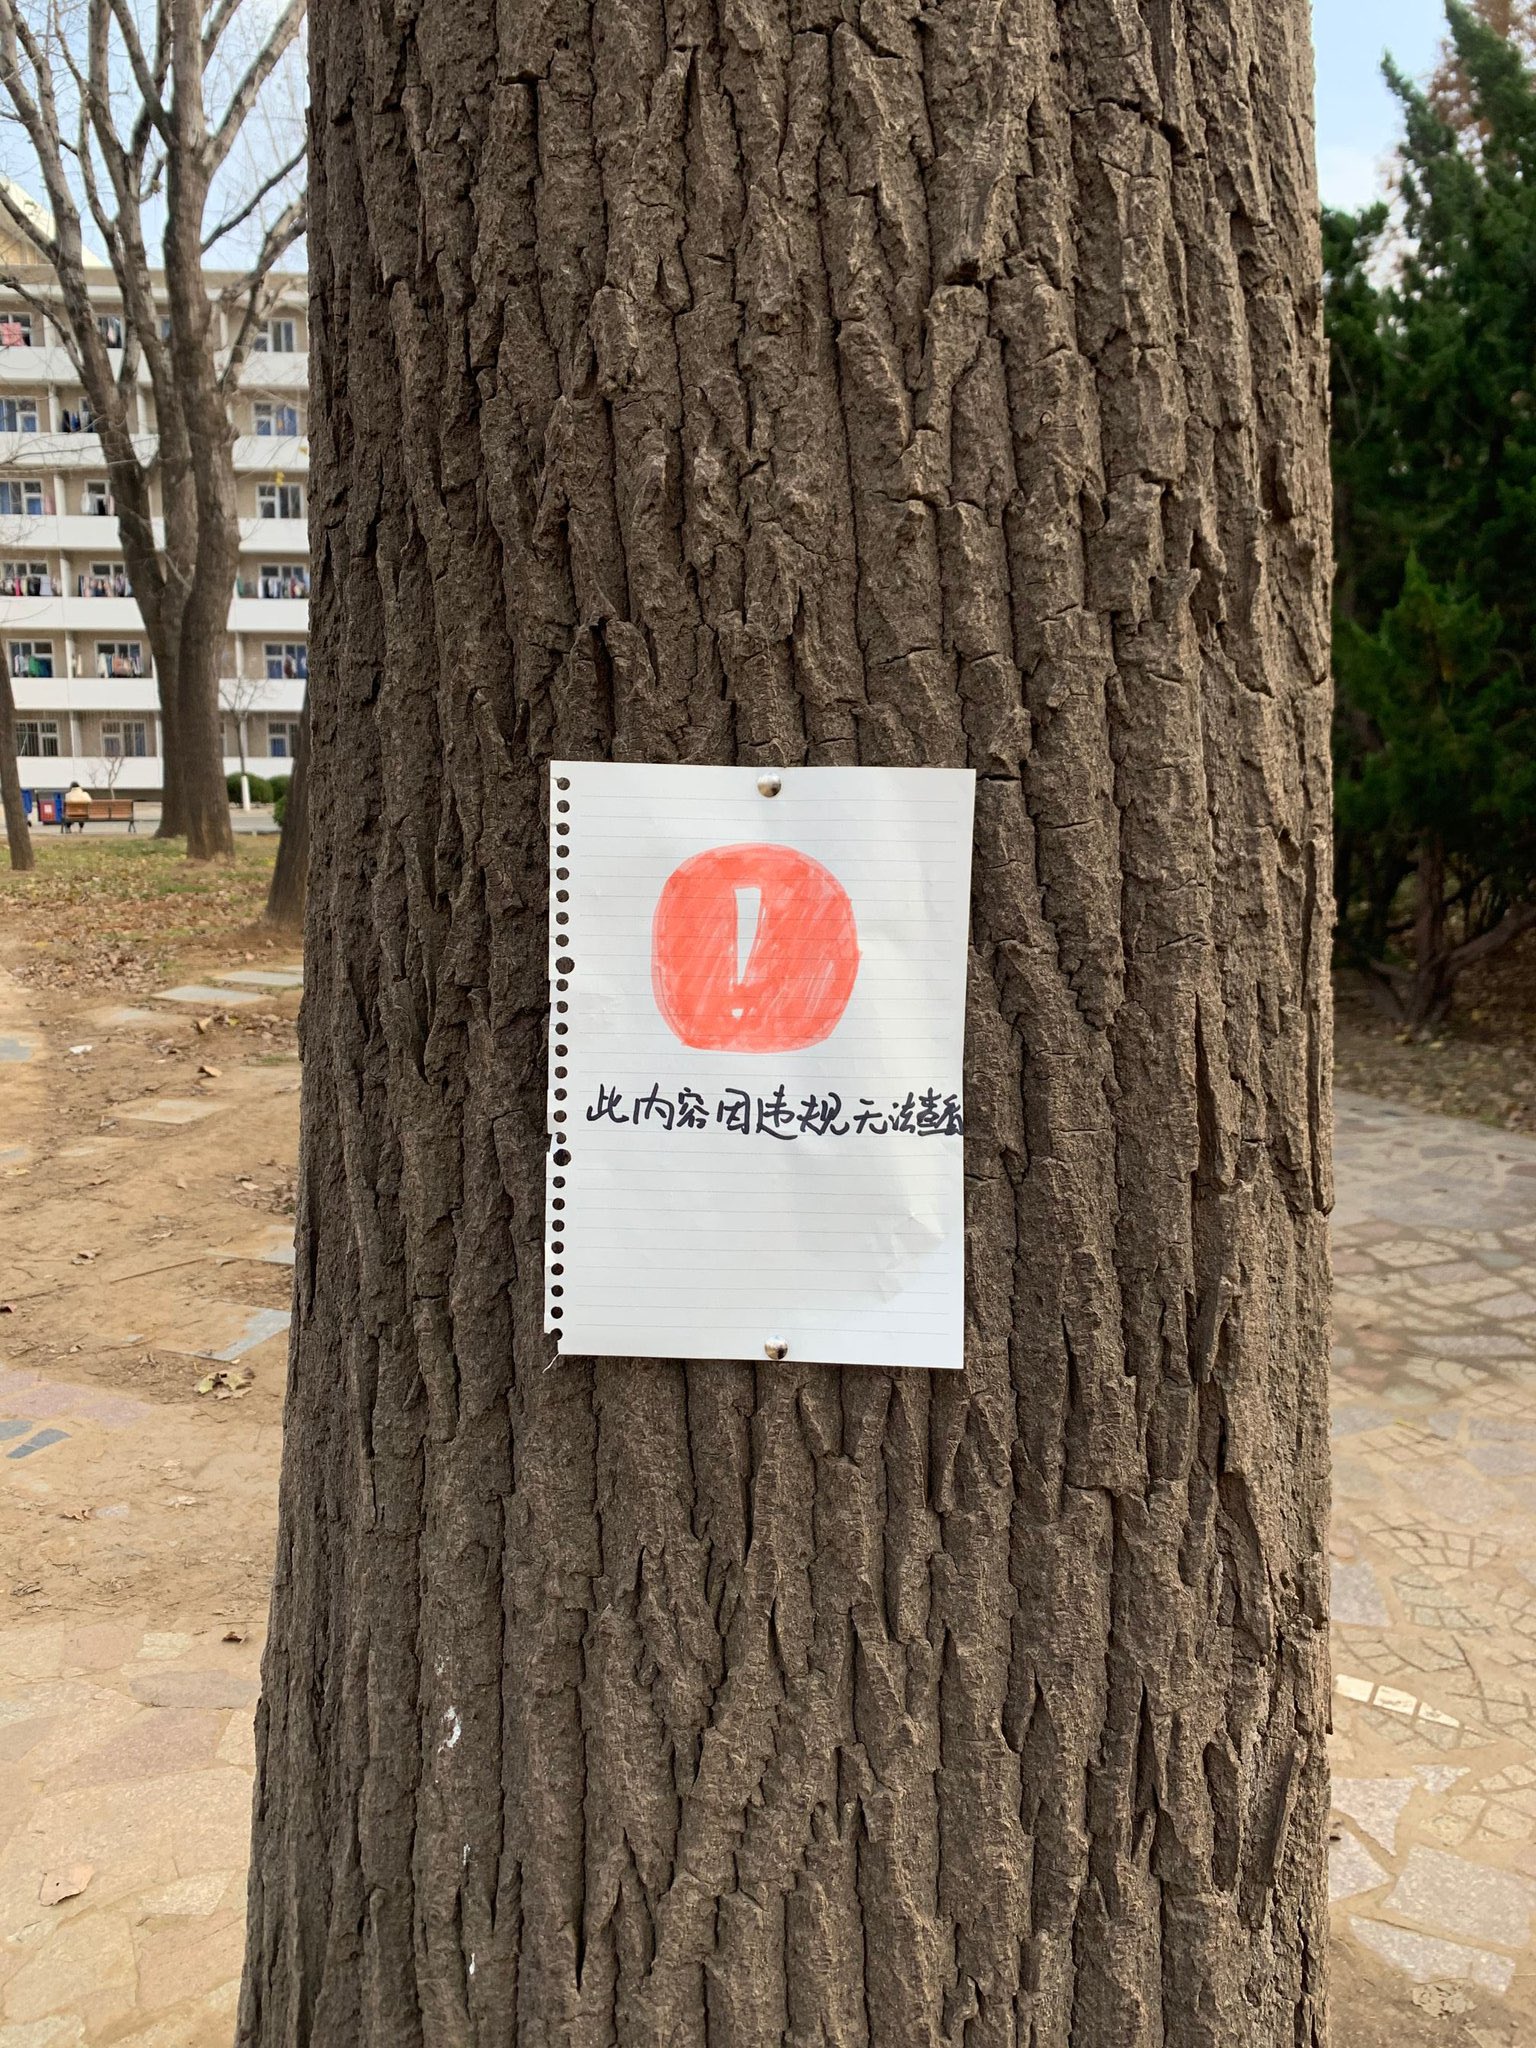 !
此内容因违规无法查看